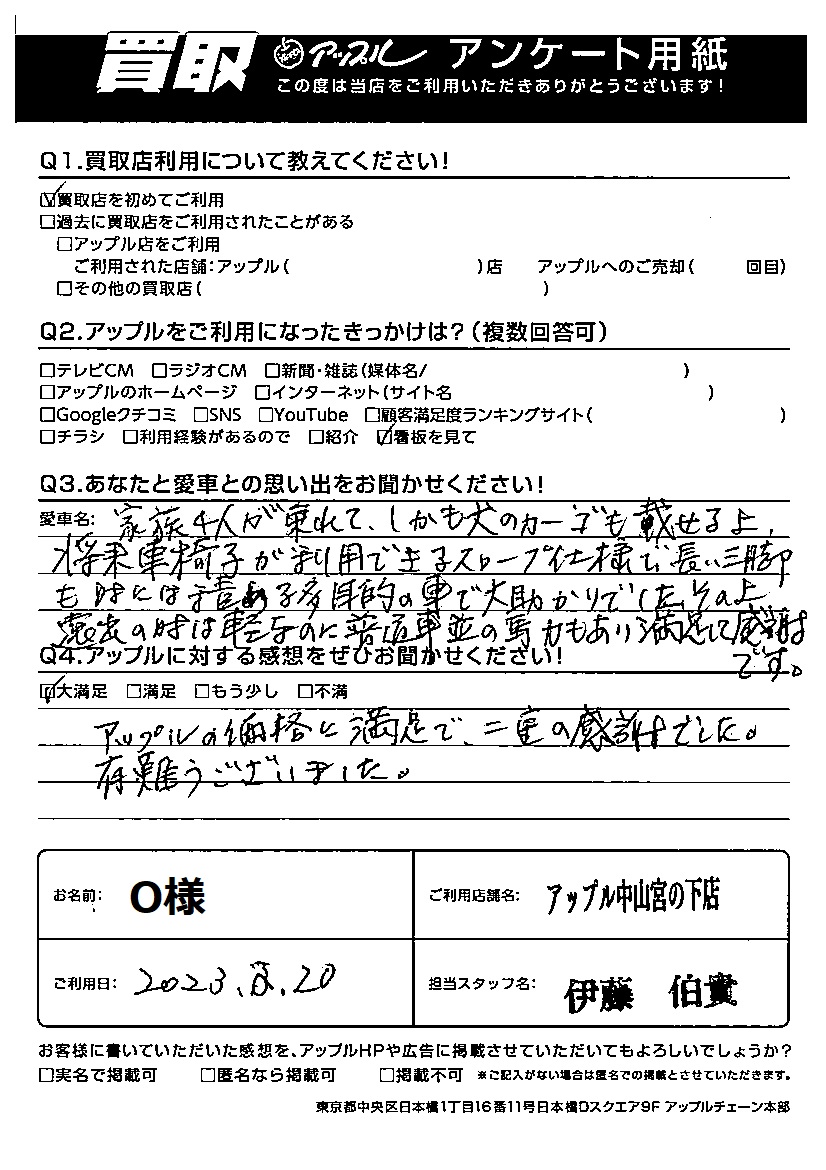 買取 アップル アンケート用紙
この度は当店をご利用いただきありがとうございます!
Q1.買取店利用について教えてください!
☑買取店を初めてご利用
□過去に買取店をご利用されたことがある
□アップル店をご利用
ご利用された店舗:アップル( )店 アップルへのご売却( 回目)
□その他の買取店( )
Q2.アップルをご利用になったきっかけは?(複数回答可)
□テレビCM □ラジオCM □新聞・雑誌(媒体名/ )
□アップルのホームページ □インターネット(サイト名 )
□Googleクチコミ □SNS □YouTube □顧客満足度ランキングサイト( )
□チラシ □利用経験があるので □紹介 ☑看板を見て
Q3.あなたと愛車との思い出をお聞かせください!
愛車名: 家族4人が乗れて、しかも犬のカーゴも載せるよ、
将来車椅子が利用できるスロープ仕様で長い三脚
も時には積める多目的の車で大助かりでした。その上
の時は軽なのに普通車並の馬力もあり満足して感謝
です。
Q4.アップルに対する感想をぜひお聞かせください!
☑大満足 □満足 □もう少し □不満
アップルの価格に満足で、二重の感謝でした。
有難うございました。
お名前: O様 ご利用店舗名: アップル中山宮の下店
ご利用日: 2023. .20 担当スタッフ名: 伊藤 伯貴
お客様に書いていただいた感想を、アップルHPや広告に掲載させていただいてもよろしいでしょうか?
□実名で掲載可 □匿名なら掲載可 □掲載不可 ※ご記入がない場合は匿名での掲載とさせていただきます。
東京都中央区日本橋1丁目16番11号日本橋Dスクエア9F アップルチェーン本部